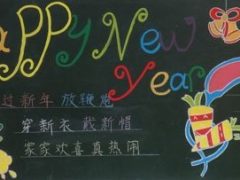 aPPy New
Year
过新年 放鞭炮
穿新衣 戴新帽
家家欢喜真热闹